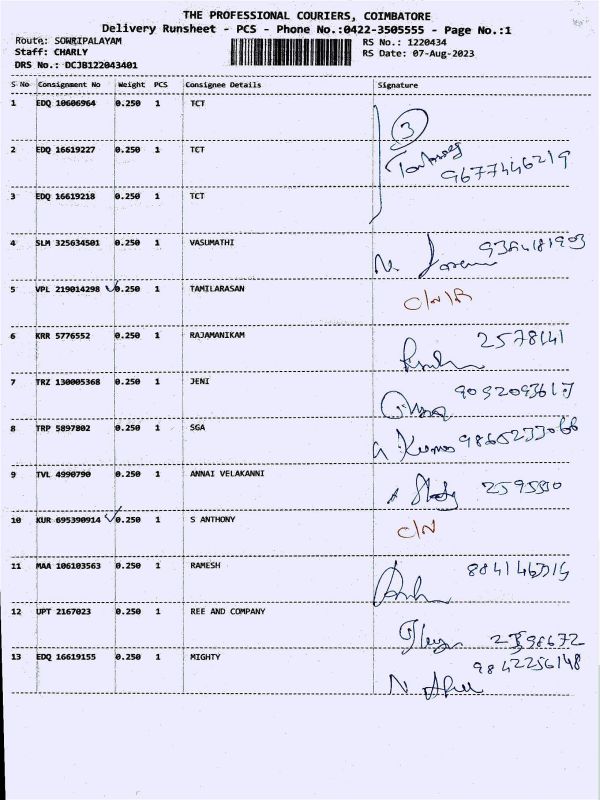 THE PROFESSIONAL COURIERS, COIMBATORE
Delivery Runsheet - PCS - Phone No.:0422-3505555 - Page No.:1
Route: SOWRIPALAYAM RS No.: 1220434
Staff: CHARLY RS Date: 07-Aug-2023
DRS No.: DCJB122043401
S No Consignment No Weight PCS Consignee Details Signature
1 EDQ 10606964 0.250 1 TCT 3
2 EDQ 16619227 0.250 1 TCT 9677446219
3 EDQ 16619218 0.250 1 TCT
4 SLM 325634501 0.250 1 VASUMATHI
5 VPL 219014298 0.250 1 TAMILARASAN C/N/R
6 KRR 5776552 0.250 1 RAJAMANIKAM 2578141
7 TRZ 130005368 0.250 1 JENI
8 TRP 5897802 0.250 1 SGA
9 TVL 4990790 0.250 1 ANNAI VELAKANNI
10 KUR 695390914 0.250 1 S ANTHONY C/N
11 MAA 106103563 0.250 1 RAMESH
12 UPT 2167023 0.250 1 REE AND COMPANY
13 EDQ 16619155 0.250 1 MIGHTY 9842256148